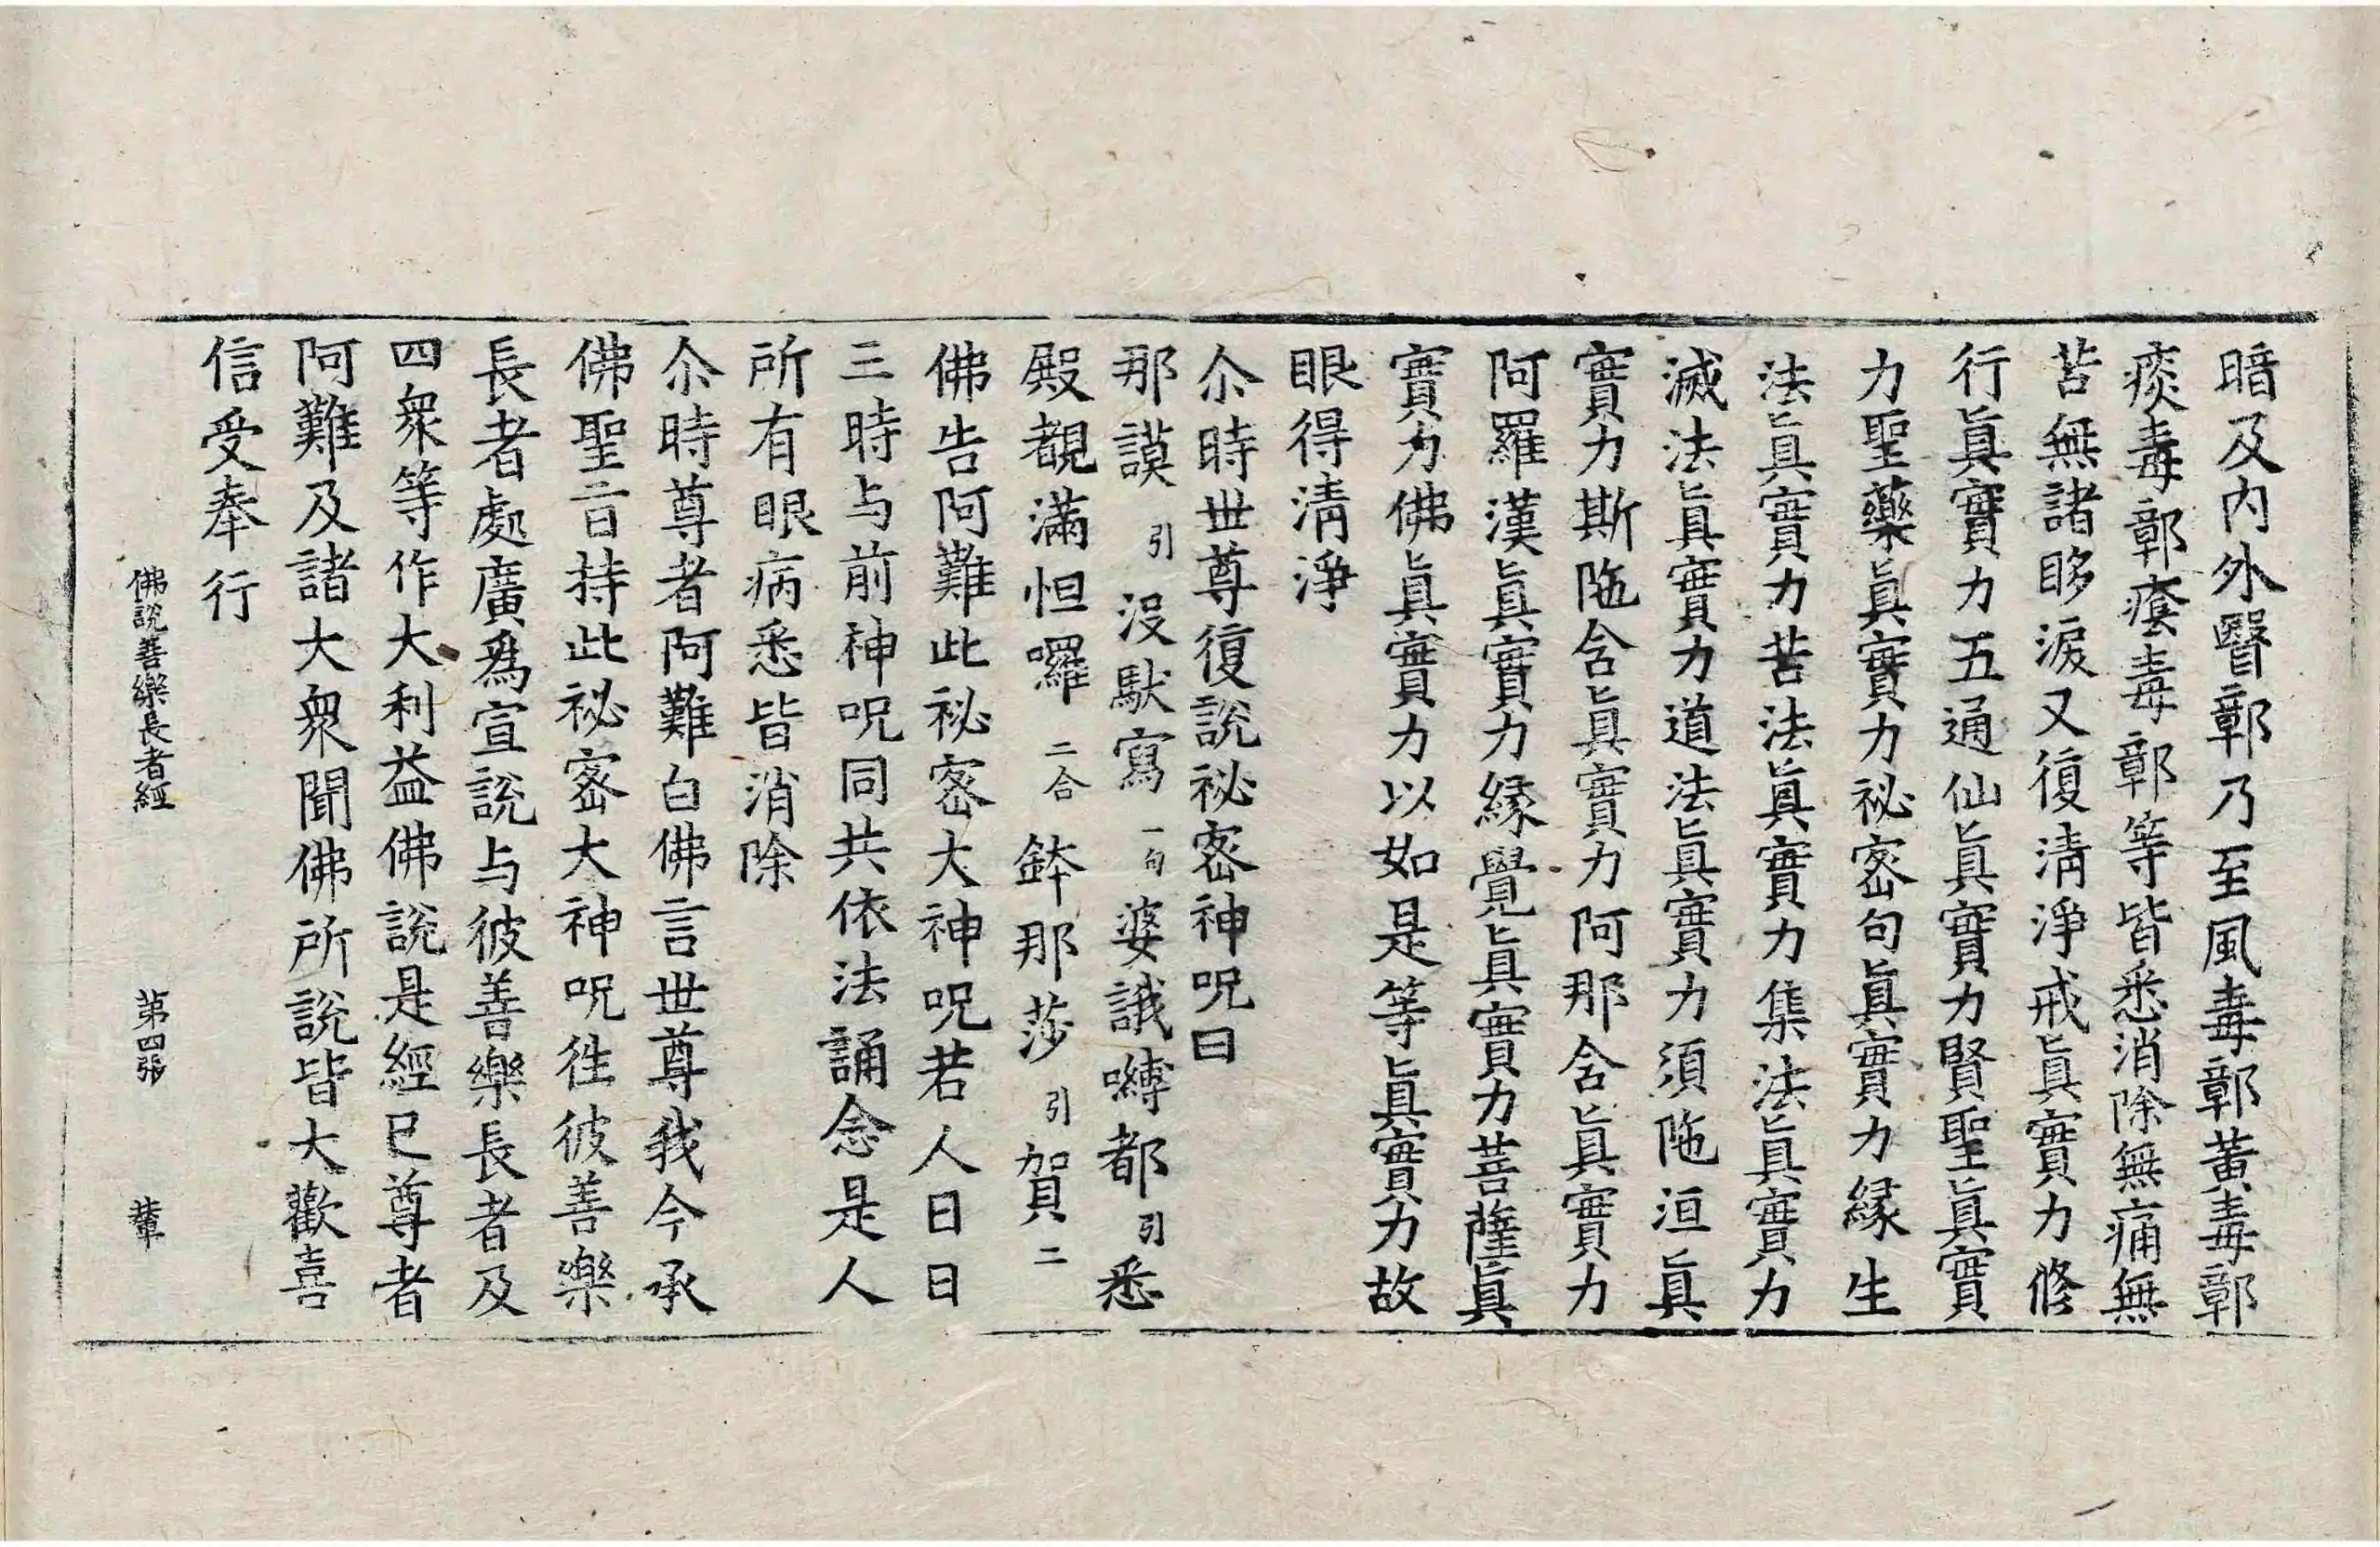 暗及内外瞖鄣乃至風毒鄣黃毒鄣
痰毒鄣癊毒鄣等皆悉消除無痛無
苦無諸眵淚又復清淨戒眞實力修
行眞實力五通仙眞實力賢聖眞實
力聖藥眞實力祕密句眞實力緣生
法眞實力苦法眞實力集法眞實力
滅法眞實力道法眞實力須陁洹眞
實力斯陁含眞實力阿那含眞實力
阿羅漢眞實力緣覺眞實力菩薩眞
實力佛眞實力以如是等眞實力故
眼得清淨
尒時世尊復說祕密神呪曰
那謨引沒馱寫一句婆誐嚩都引悉
殿覩滿怛囉二合鉢那莎引賀二
佛告阿難此祕密大神呪若人日日
三時与前神呪同共依法誦念是人
所有眼病悉皆消除
尒時尊者阿難白佛言世尊我今承
佛聖旨持此祕密大神呪徃彼善樂
長者處廣爲宣說与彼善樂長者及
四衆等作大利益佛說是經已尊者
阿難及諸大衆聞佛所說皆大歡喜
信受奉行
佛說善樂長者經 第四張 輦